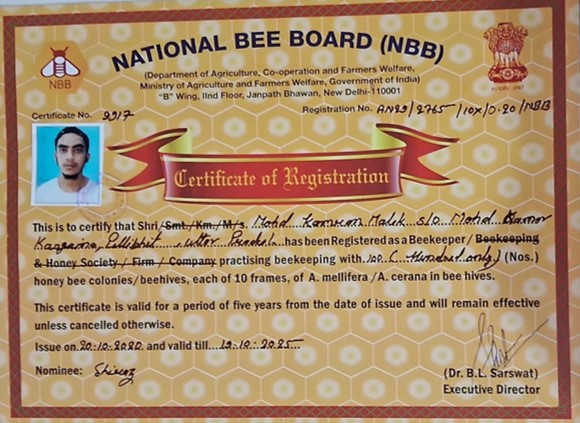 NATIONAL BEE BOARD (NBB)
NBB
(Department of Agriculture, Co-operation and Farmers Welfare,
Ministry of Agriculture and Farmers Welfare, Government of India)
"B" Wing, IInd Floor, Janpath Bhawan, New Delhi-110001
Certificate No. 9917
Registration No.
Certificate of Registration
This is to certify that Shri/Smt./Km./M/s. Mohd Malik s/o Mohd
has been Registered as a Beekeeper / Beekeeping
& Honey Society / Firm / Company practising beekeeping with 100 (Hundred only) (Nos.)
honey bee colonies/beehives, each of 10 frames, of A. mellifera / A. cerana in bee hives.
This certificate is valid for a period of five years from the date of issue and will remain effective
unless cancelled otherwise.
Issue on 20-10-2020 and valid till 19-10-2025
Nominee:
(Dr. B.L. Sarswat)
Executive Director